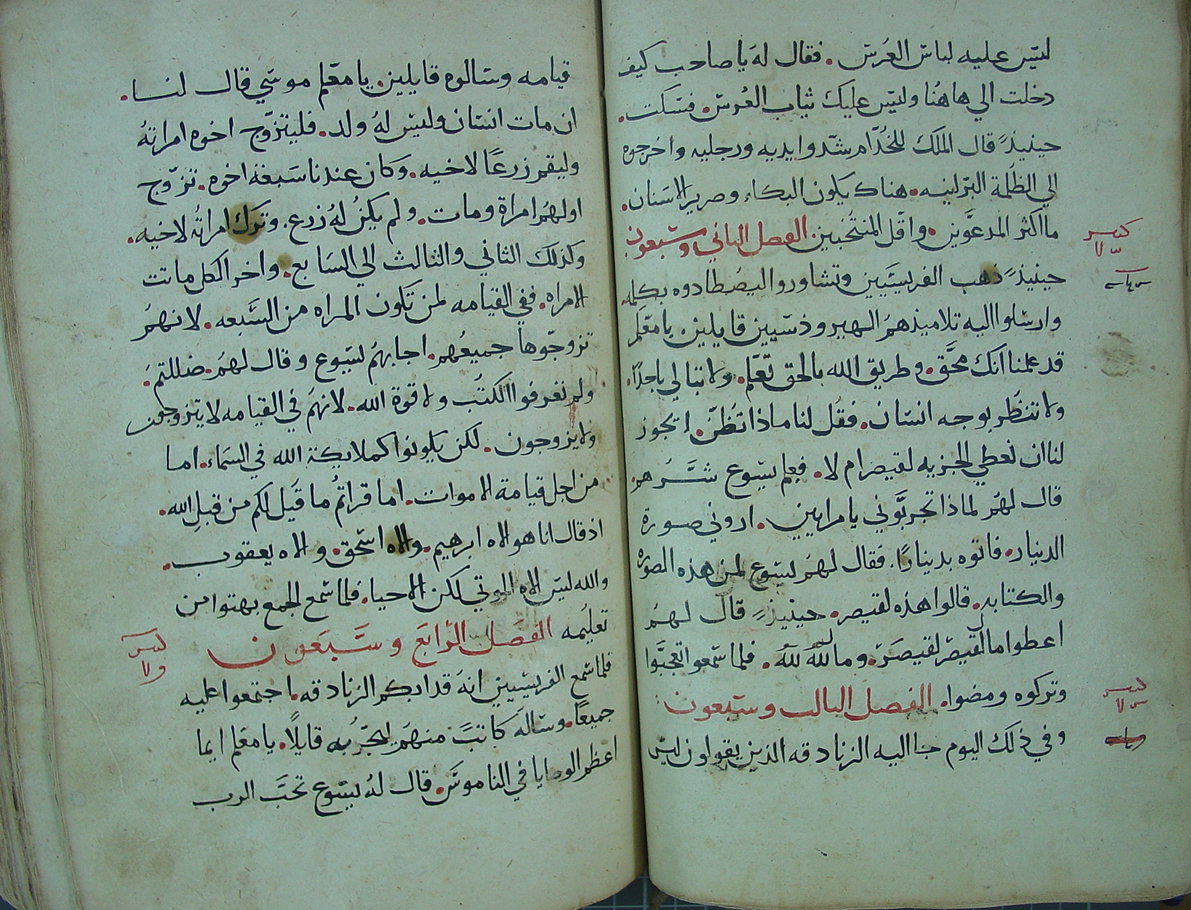 ليس عليه لباس العرس. فقال له يا صاحب كيف
دخلت الي هاهنا وليس عليك ثياب العرس. فسكت.
حينيذ قال الملك للخدام شدوا يديه ورجليه واخرجوه
الي الظلمة البرانيه. هناك يكون البكاء وصرير الاسنان.
ما اكثر المدعوين. واقل المنتخبين. الفصل الثاني وسبعون
حينيذ ذهب الفريسيين وتشاوروا ليصطادوه بكلمه.
وارسلوا اليه تلاميذهم الهيروذسيين قايلين. يا معلم
قد علمنا انك محق. وطريق الله بالحق تعلم. ولا تبالي باحدا.
ولا تنظر لوجه انسان. فقل لنا ماذا تظن. ايجوز
لنا ان نعطي الجزيه لقيصر ام لا. فعلم يسوع شرهم
قال لهم لماذا تجربوني يا مرايين. اروني صورة
الدينار. فاتوه بدينارا. فقال لهم يسوع لمن هذه الصوره
والكتابه. قالوا هذه لقيصر. حينيذ قال لهم
اعطوا ما لقيصر لقيصر. وما لله لله. فلما سمعوا تعجبوا
وتركوه ومضوا. الفصل الثالث وسبعون
وفي ذلك اليوم جا اليه الزنادقه الذين يقولون ليس
قيامه وسالوه قايلين. يا معلم موسي قال لنا.
ان مات انسان وليس له ولد. فليتزوج اخوه امراته
وليقم زرعا لاخيه. وكان عندنا سبعة اخوه. تزوج
اولهم امراة ومات. ولم يكن له زرع. وترك امراته لاخيه.
وكذلك الثاني والثالث الي السابع. واخر الكل ماتت
الامراه. ففي القيامه لمن تكون المراه من السبعه. لانهم
تزوجوها جميعهم. اجابهم يسوع وقال لهم. ضللتم.
ولم تعرفوا الكتب ولا قوة الله. لانهم في القيامه لا يتزوجون
ولا يزوجون. لكن يكونوا كملايكة الله في السماء. اما
من اجل قيامة الاموات. اما قراتم ما قيل لكم من قبل الله.
اذ قال انا هو الاه ابرهيم. والاه اسحق. والاه يعقوب.
والله ليس الاه الموتي لكن الاحيا. فلما سمع الجمع بهتوا من
تعليمه الفصل الرابع وسبعون
فلما سمع الفريسيين انه قد ابكم الزنادقه. اجتمعوا عليه
جميعا. وساله كاتب منهم ليجربه قايلا. يا معلم ايما
اعظم الوصايا في الناموس. قال له يسوع تحب الرب